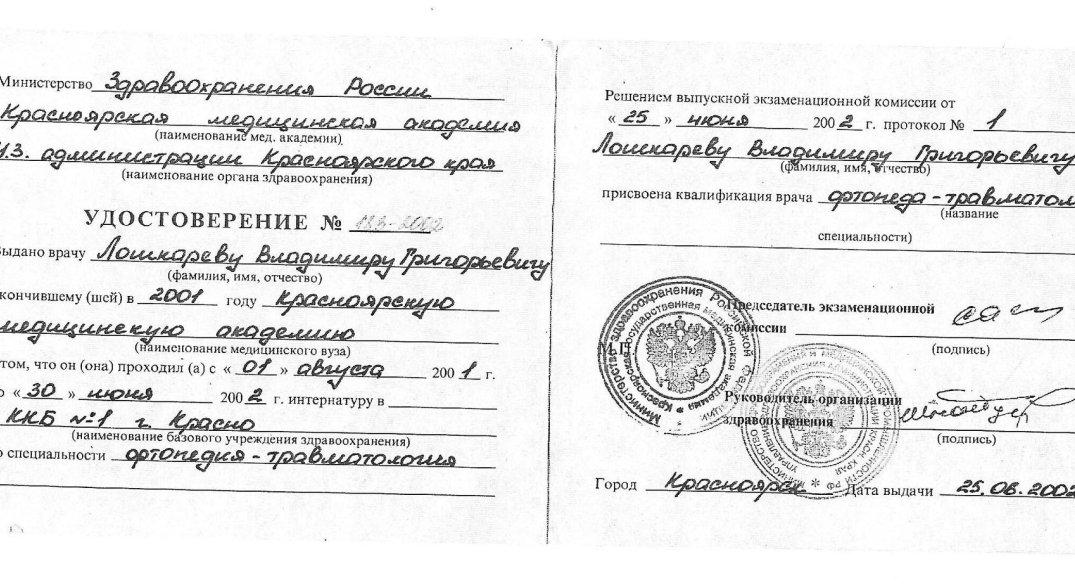 Министерство Здравоохранения России
Красноярская медицинская академия
(наименование мед. академии)
У.З. администрации Красноярского края
(наименование органа здравоохранения)
УДОСТОВЕРЕНИЕ № -2002
Выдано врачу Лошкареву Владимиру Григорьевичу
(фамилия, имя, отчество)
окончившему (шей) в 2001 году Красноярскую
медицинскую академию
(наименование медицинского вуза)
том, что он (она) проходил (а) с « 01 » августа 200 1 г.
о « 30 » июня 200 2 г. интернатуру в
ККБ №1 г. Красно
(наименование базового учреждения здравоохранения)
о специальности ортопедия - травматология
Решением выпускной экзаменационной комиссии от
« 25 » июня 200 2 г. протокол № 1
Лошкареву Владимиру Григорьевичу
(фамилия, имя, отчество)
присвоена квалификация врача ортопеда - травматол
(название
специальности)
Министерство здравоохранения Российской
Красноярская государственная медицинская академия
Председатель экзаменационной
комиссии
(подпись)
М.П.
Руководитель организации
здравоохранения
(подпись)
Город Красноярск Дата выдачи 25.06.2002